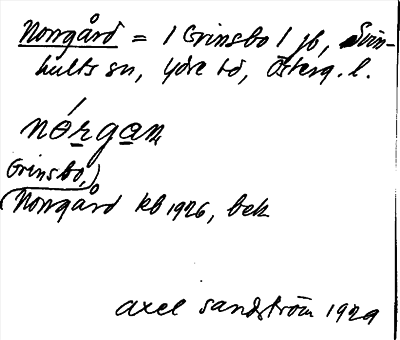 Norrgård = 1 Grinsbo 1 jb, Svin-
hults sn, Ydre hd, Österg. l.
nórgan
Grinsbo,)
(Norrgård kb 1926, bek
Axel Sandström 1929